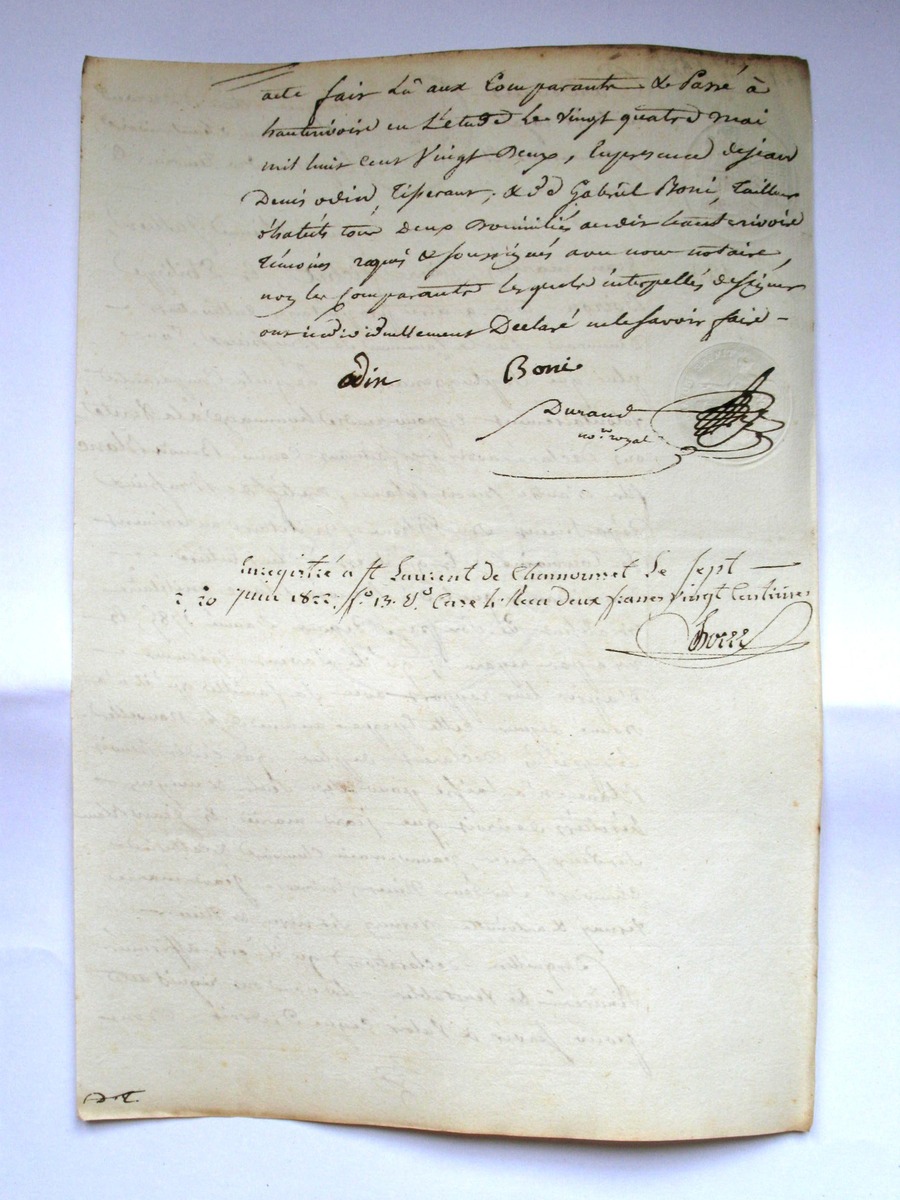 acte fait Lû aux Comparants & Passé à
hauterivoire en L'étude Le Vingt quatre mai
mil huit cent Vingt Deux, En presence de jean
Denis odin, Tisserant, & de Gabriel Boni, Tailleur
d'habits tous Deux Domiciliés audit hauterivoire
Témoins requis & soussignés avec nous notaire,
non les Comparants lesquels interpellés de signer
ont individuellement Déclaré ne le savoir faire -
odin Boni
Durand
no.re royal
Enregistré a St Laurent de Chamousset Le sept
2,20 juin 1822 fo. 13. Vo. Case 4. Reçu deux francs Vingt Centimes